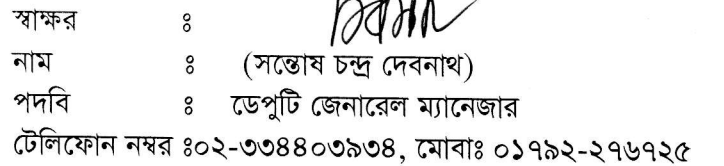 স্বাক্ষর ঃ
নাম ঃ (সন্তোষ চন্দ্র দেবনাথ)
পদবি ঃ ডেপুটি জেনারেল ম্যানেজার
টেলিফোন নম্বর ঃ০২-৩৩৪৪০৩৯৩৪, মোবাঃ ০১৭৯২-২৭৬৭২৫